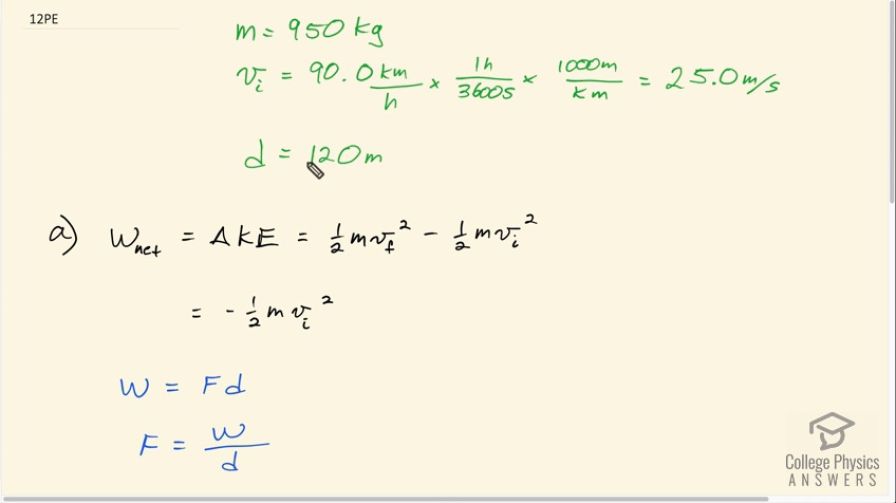 12PE
m = 950 kg
v_i = 90.0 km/h × 1h/3600s × 1000m/km = 25.0 m/s
d = 120 m
a) W_net = ΔKE = 1/2 m v_f² - 1/2 m v_i²
= - 1/2 m v_i²
W = Fd
F = W/d
College Physics
ANSWERS